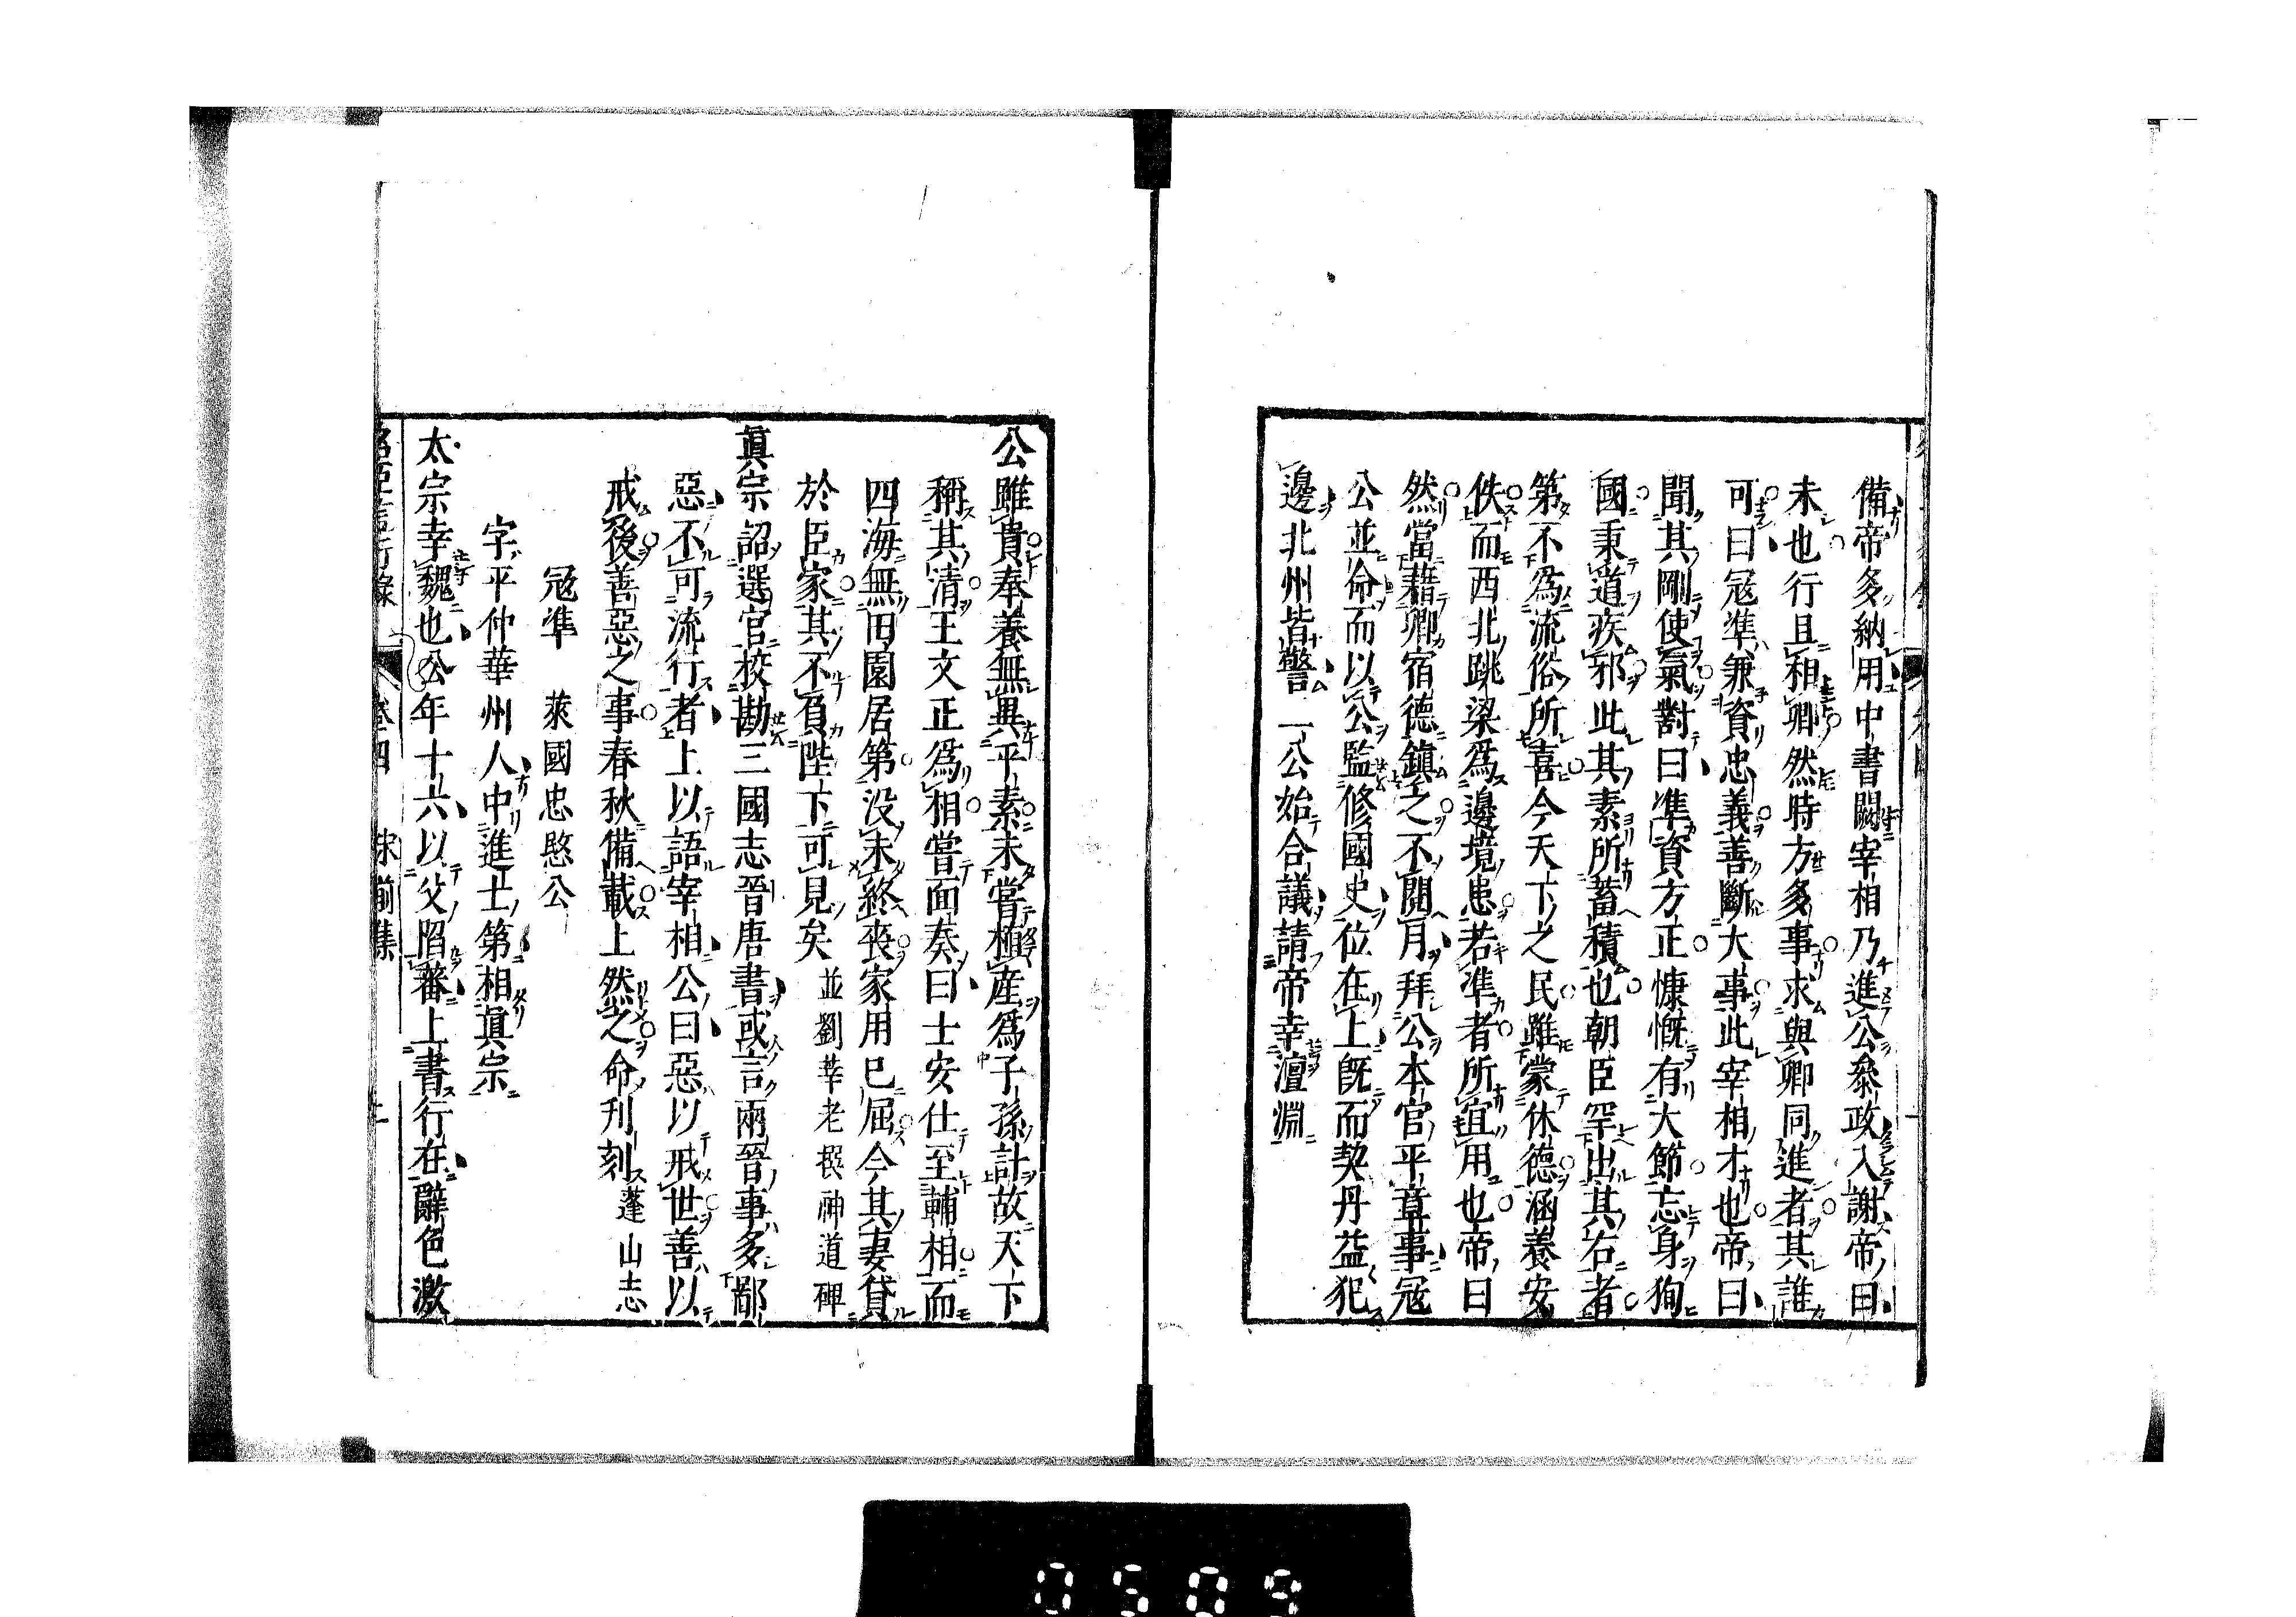 備帝多納用中書闕宰相乃進公叅政入謝帝曰
未也行且相卿然時方多事求與卿同進者其誰
可曰冦準兼資忠義善斷大事此宰相才也帝曰
聞其剛使氣對曰準資方正慷慨有大節忘身狥
國秉道疾邪此其素所蓄積也朝臣罕出其右者
第不爲流俗所喜今天下之民雖蒙休德涵養安
佚而西北跳梁爲邊境患若準者所宜用也帝曰
然當藉卿宿德鎮之不閱月拜公本官平章事冦
公並命而以公監修國史位在上旣而契丹益犯
邊北州皆警二公始合議請帝幸澶淵
公雖貴奉養無異平素未嘗植産爲子孫計故天下
稱其清王文正爲相嘗面奏曰士安仕至輔相而
四海無田園居第没未終喪家用已屈今其妻貸
於臣家其不負陛下可見矣 並劉莘老撰神道碑
眞宗詔選官校勘三國志晉唐書或言兩晉事多鄙
惡不可流行者上以語宰相公曰惡以戒世善以
戒後善惡之事春秋備載上然之命刋刻 蓬山志
冦準 萊國忠愍公
字平仲華州人中進士第相眞宗
太宗幸魏也公年十六以父陷蕃上書行在辭色激
名臣言行錄 卷四 宋前集
0509